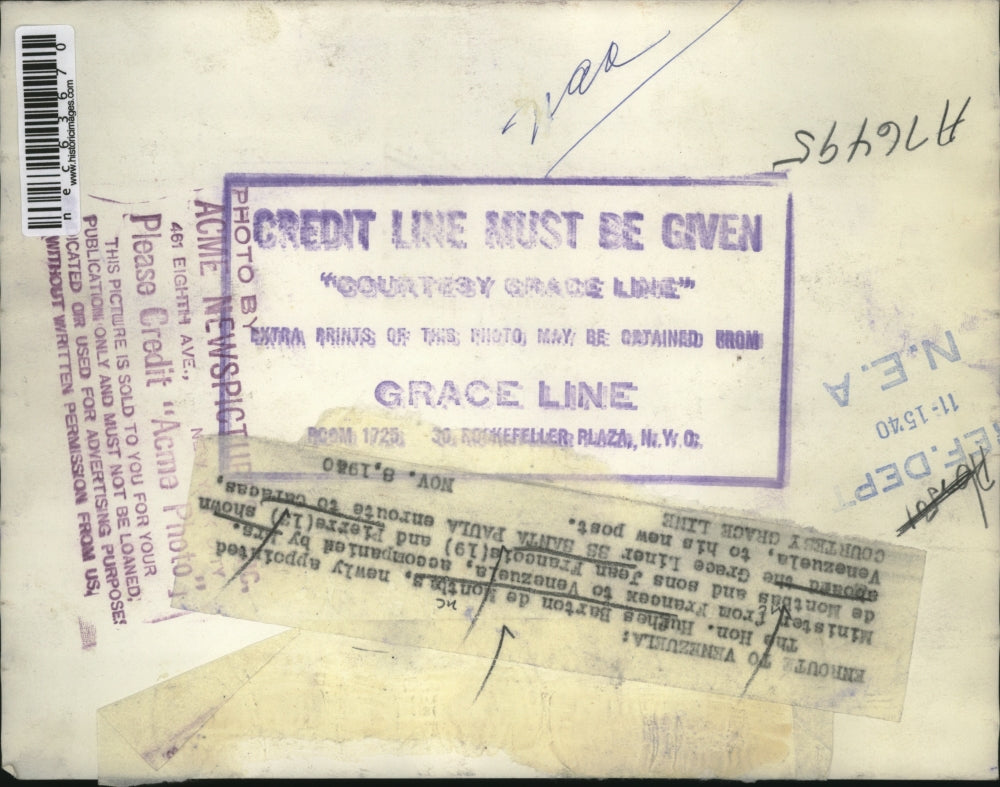 necc63670
www.historicimages.com
A76495
CREDIT LINE MUST BE GIVEN
"COURTESY GRACE LINE"
EXTRA PRINTS OF THIS PHOTO MAY BE OBTAINED FROM
GRACE LINE
ROOM 1725, 30 ROCKEFELLER PLAZA, N.Y.C.
PHOTO BY
ACME NEWSPICTURES, INC.
461 EIGHTH AVE., N. Y. CITY
Please Credit "Acme Photo"
THIS PICTURE IS SOLD TO YOU FOR YOUR
PUBLICATION ONLY AND MUST NOT BE LOANED,
ICATED OR USED FOR ADVERTISING PURPOSES
WITHOUT WRITTEN PERMISSION FROM US.
N.E.A
11-1540
REF. DEPT
ENROUTE TO VENEZUELA:
The Hon. Hughes Barton de Monthas, newly appointed
Minister from France to Venezuela, accompanied by Mrs.
de Montbas and sons Jean Francois(19) and Pierre(13) shown
aboard the Grace Liner SS SANTA PAULA enroute to Caracas,
Venezuela, to his new post.
COURTESY GRACE LINE
NOV. 8,1940